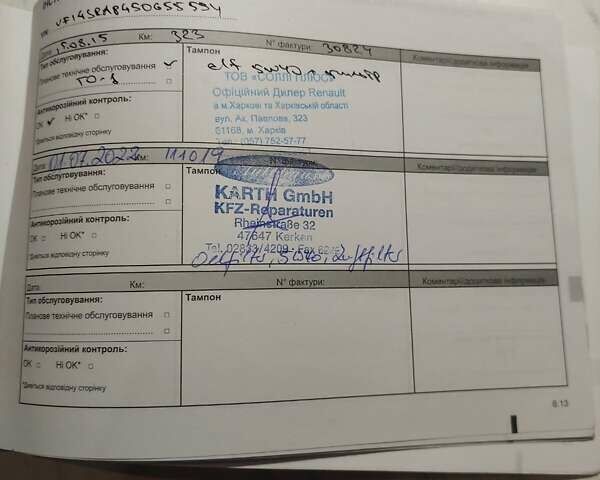 VIN: VF14SRAP450655594
Дата: 15.08.15 Км: 323 N° фактури: 30824 Коментарі/додаткова інформація
Тип обслуговування: Тампон
Планове технічне обслуговування ✓ elf 5w40 + фильтр
ТО-1 □ ТОВ «СОЛЛІ ПЛЮС»
Офіційний Дилер Renault
Антикорозійний контроль: в м.Харкові та Харківській області
OK ✓ Ні OK* □ вул. Ак. Павлова, 323
61168, м. Харків
*Дивіться відповідну сторінку Тел. (057) 752-57-77
Дата: 01.07.2022 Км: 111019 N° фактури: Коментарі/додаткова інформація
Тип обслуговування: Тампон
Планове технічне обслуговування □ KARTH GmbH
KFZ-Reparaturen
Антикорозійний контроль: Rheinstraße 32
OK □ Ні OK* □ 47647 Kerken
*Дивіться відповідну сторінку Tel. 02833/4209 - Fax
Oelfilter, 5W40, Luftfilter
Дата: Км: N° фактури: Коментарі/додаткова інформація
Тип обслуговування: Тампон
Планове технічне обслуговування □
□
Антикорозійний контроль:
OK □ Ні OK* □
*Дивіться відповідну сторінку
6.13